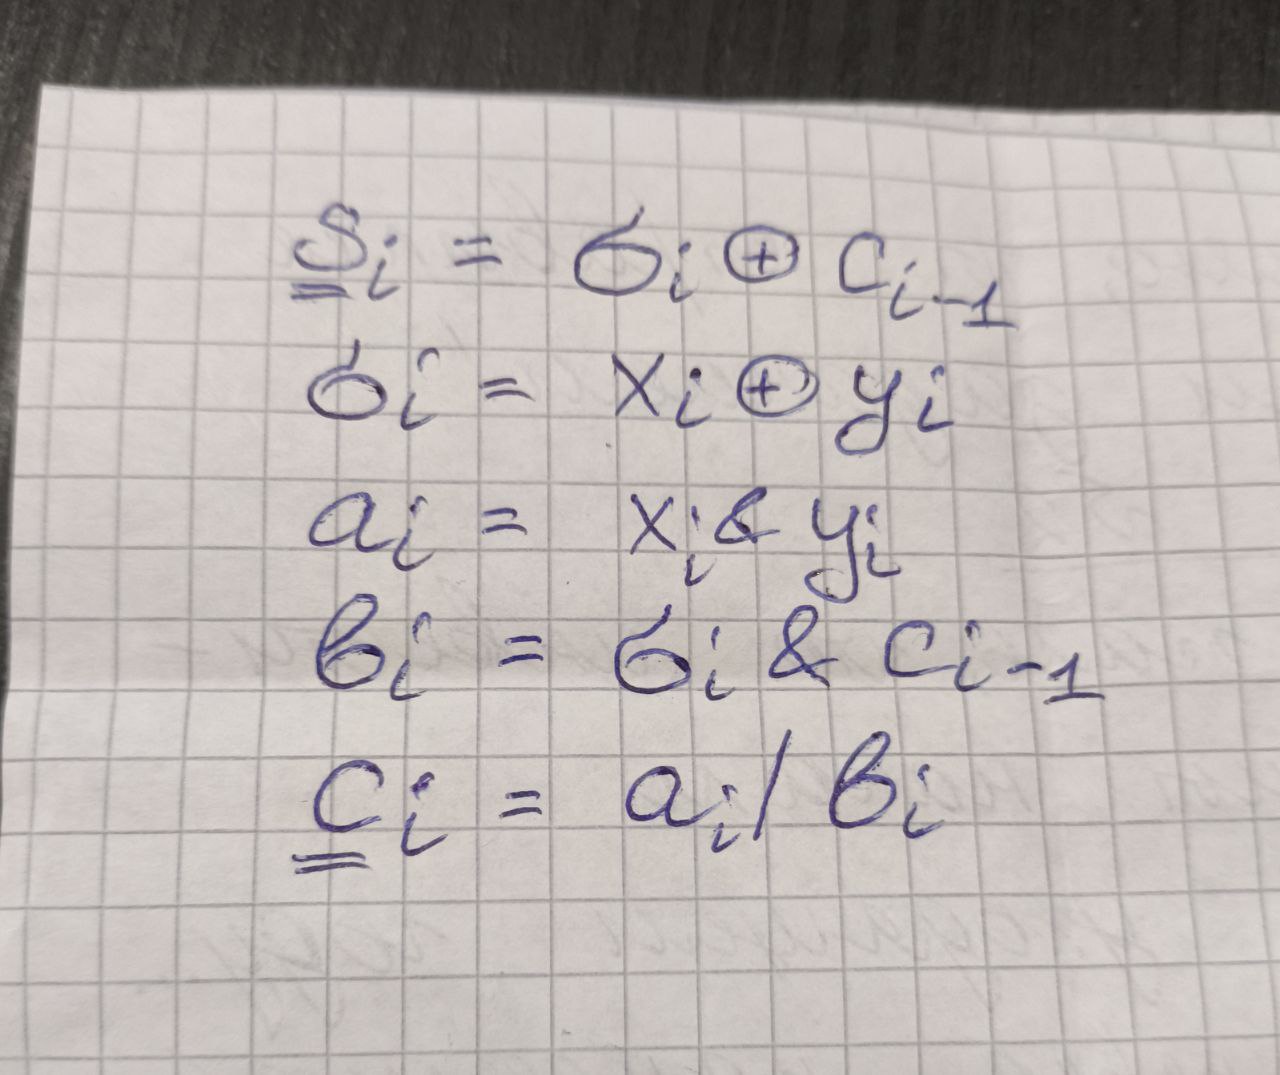 Sᵢ = σᵢ ⊕ Cᵢ₋₁
σᵢ = xᵢ ⊕ yᵢ
aᵢ = xᵢ & yᵢ
bᵢ = σᵢ & Cᵢ₋₁
Cᵢ = aᵢ | bᵢ